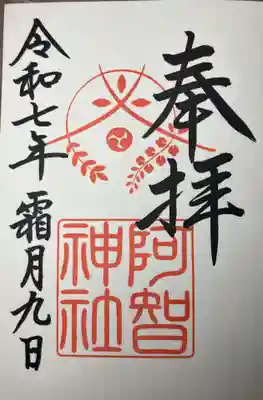 奉拝
阿智神社
令和七年 霜月九日